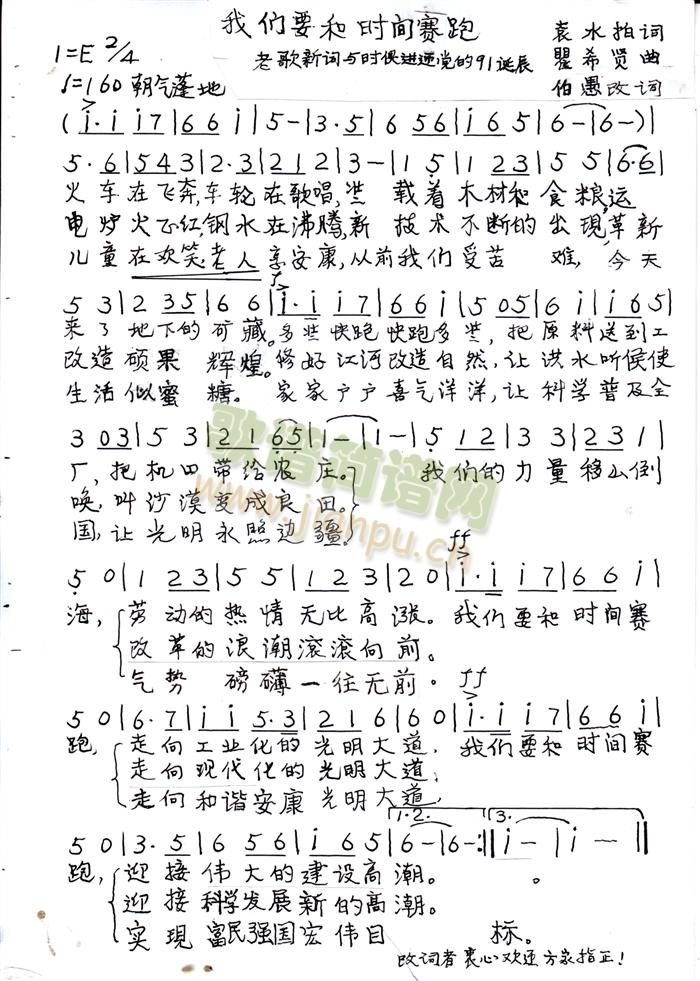 我们要和时间赛跑
袁水拍词
1=E 2/4
老歌新词与时俱进迎党的91诞辰
瞿希贤曲
♩=160 朝气蓬地
伯愚改词
(i·i i7|66 i|5-|3·5|6 56|i 65|6-|6-)|
5·6|543|2·3|212|3-|1 5|1 23|5 5|6·6|
火车在飞奔,车轮在歌唱,装载着木材和食粮,运
电炉火正红,钢水在沸腾,新技术不断的出现,革新
儿童在欢笑,老人享安康,从前我们受苦难,今天
f
5 3|2 35|6 6|i·i i7|66 i|5 05|6 i|i 65|
来了地下的矿藏。多装快跑快跑多装,把原料送到工
改造硕果 辉煌。修好江河改造自然,让洪水听候使
生活似蜜 糖。家家户户喜气洋洋,让科学普及全
3 03|5 3|21 65|1-|1-|5 12|3 3|23 1|
厂,把机四带给农庄。我们的力量移山倒
唤,叫沙漠变成良田。
国,让光明永照边疆。
歌谱简谱网
www.jianpu.cn
ff
5 0|1 23|5 5|12 3|2 0|i·i i7|66 i|
海,劳动的热情无比高涨。我们要和时间赛
改革的浪潮滚滚向前。
气势 磅礴一往无前。
ff
5 0|6·7|i i 5·3|21 6|6 0|i·i i7|66 i|
跑,走向工业化的光明大道,我们要和时间赛
走向现代化的光明大道,
走向和谐安康光明大道,
1·2· 3.
5 0|3·5|6 56|i 65|6-|6-:‖i-|i-‖
跑,迎接伟大的建设高潮。。
迎接科学发展新的高潮。
实现富民强国宏伟目 标。
改词者衷心欢迎方家指正!